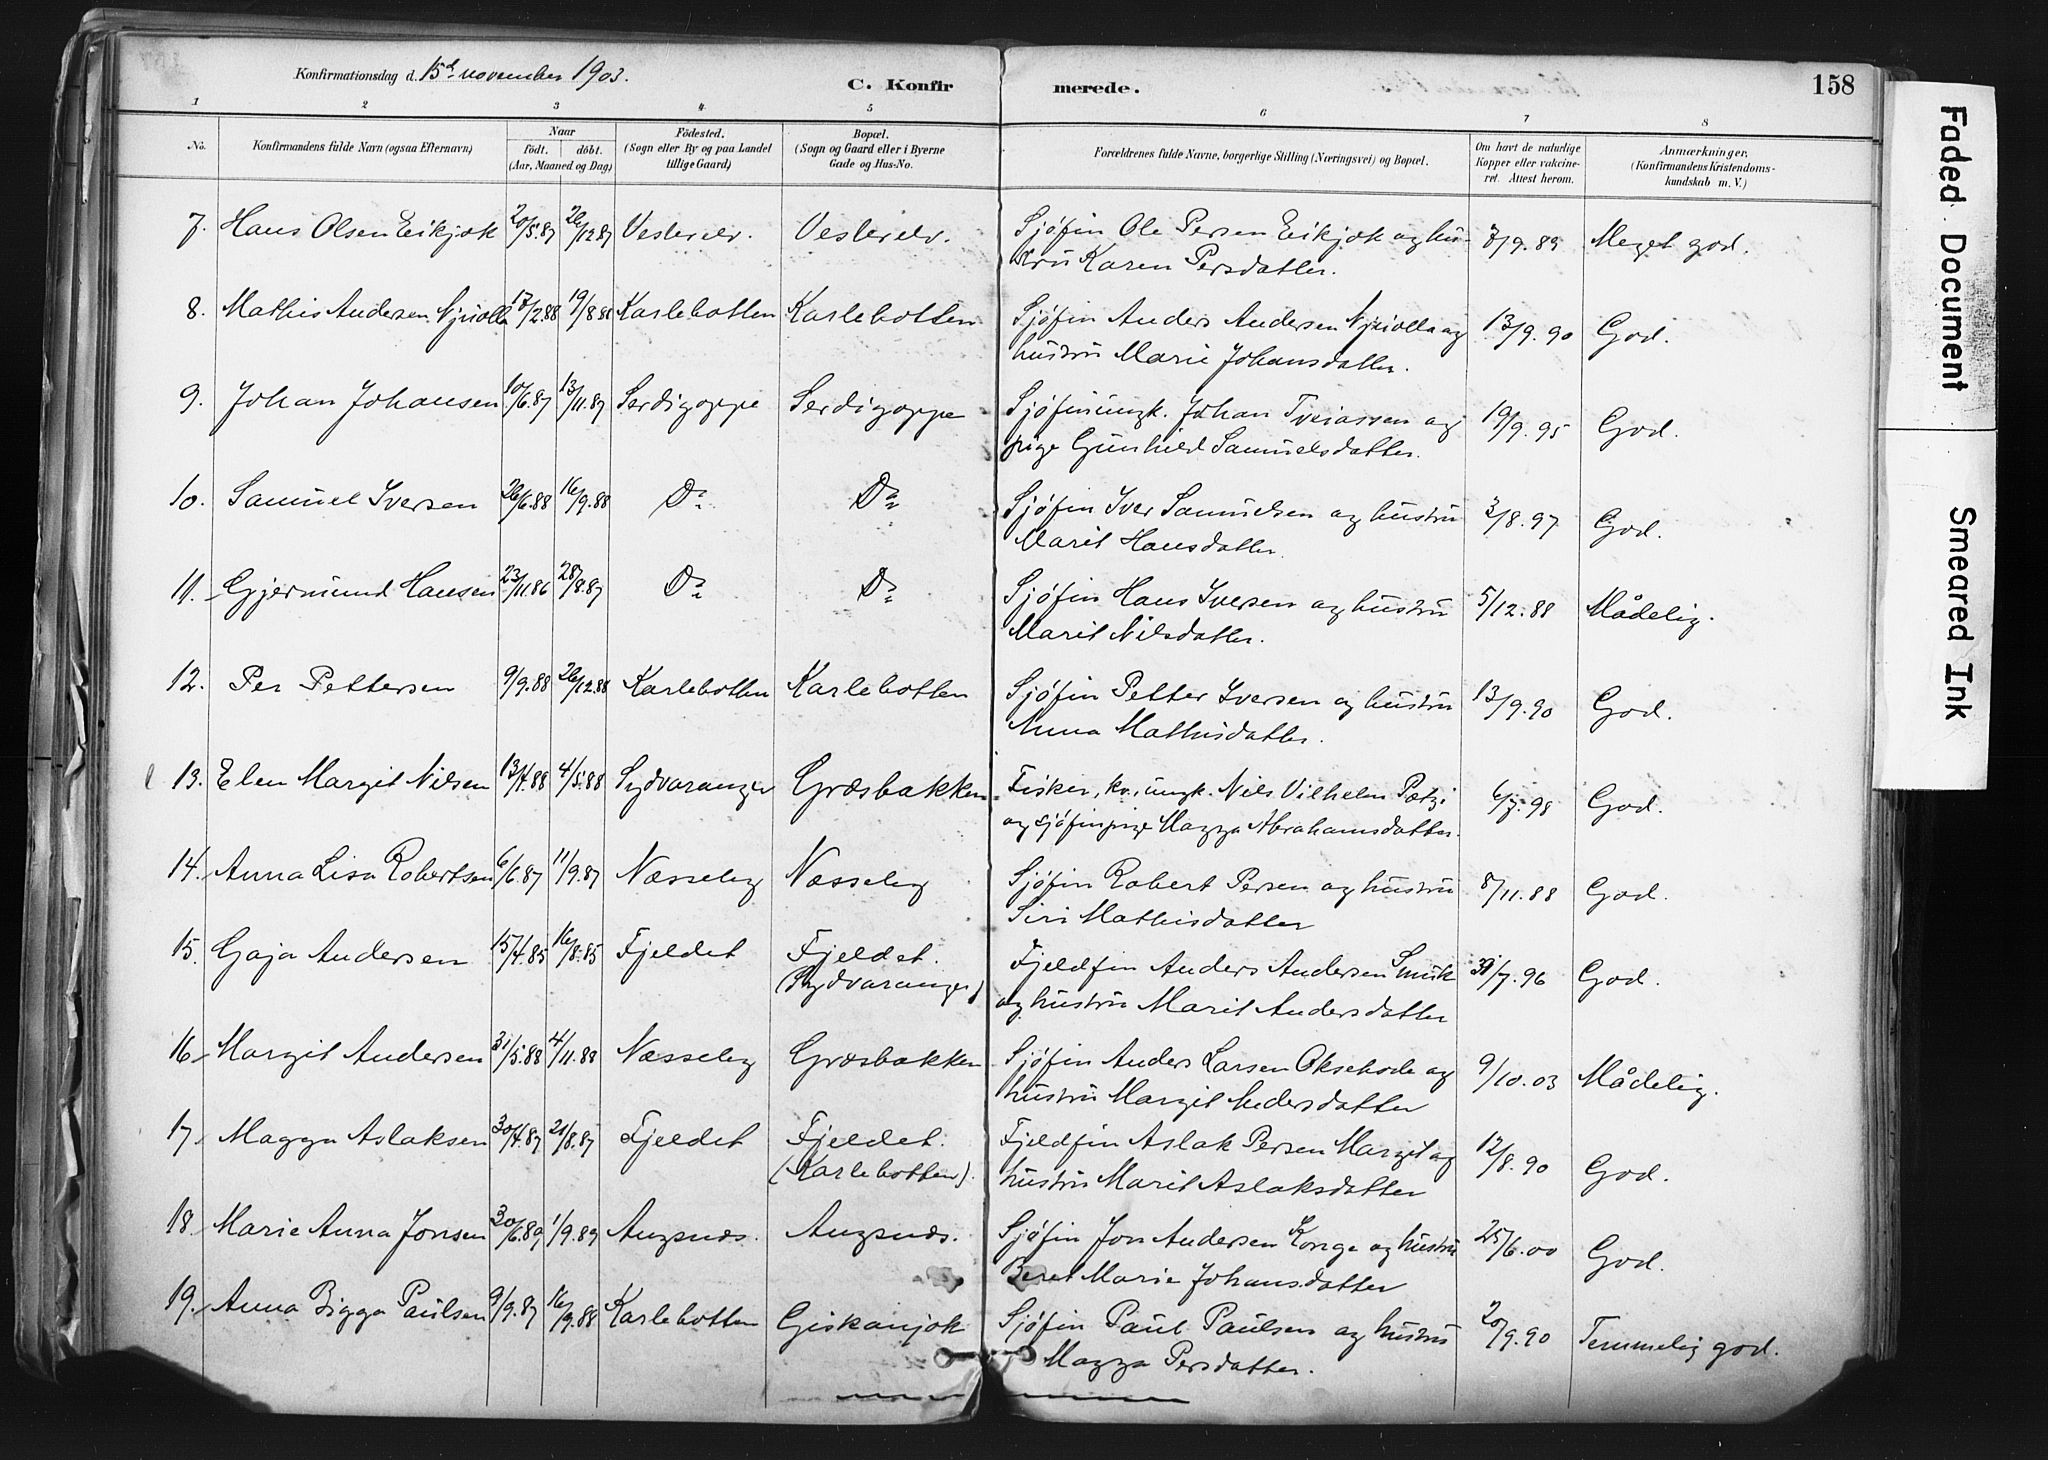 Konfirmationsdag d. 15de november 1903.
C. Konfir merede. 158
1 2 3 4 5 6 7 8
No. Konfirmandens fulde Navn (ogsaa Efternavn) Naar Födt. döbt. (Aar, Maaned og Dag) Födested. (Sogn eller By og paa Landet tillige Gaard) Bopæl. (Sogn og Gaard eller i Byerne Gade og Hus-No. Forældrenes fulde Navne, borgerlige Stilling (Næringsvei) og Bopæl. Om havt de naturlige Kopper eller vakcineret. Attest herom. Anmærkninger. (Konfirmandens Kristendomskundskab m. V.)
7. Hans Olsen Eikjok 20/5.87 26/12.87 Vesterelv. Vesterelv. Sjøfin Ole Persen Eikjok og hu-
stru Karen Persdatter. 7/9.89 Meget god.
8. Mathis Andersen Njuolla 17/2.88 19/8.88 Karlebotten Karlebotten Sjøfin Anders Andersen Njuolla og
hustru Marie Johansdatter. 13/9.90 God.
9. Johan Johansen 10/6.87 13/11.87 Serdigoppe Serdigoppe Sjøfinungk. Johan Tveiassen og
pige Gunhild Samuelsdatter. 19/9.95 God.
10. Samuel Iversen 26/6.88 16/9.88 Do Do Sjøfin Iver Samuelsen og hustru
Marit Hansdatter. 3/8.97 God.
11. Gjermund Hansen 23/11.86 28/8.87 Do Do Sjøfin Hans Iversen og hustru
Marit Nilsdatter. 5/12.88 Mådelig.
12. Per Pettersen 9/9.88 26/12.88 Karlebotten Karlebotten Sjøfin Petter Iversen og hustru
Anna Mathisdatter. 13/9.90 God.
13. Elen Margit Nilsen 13/4.88 4/5.88 Sydvaranger Græsbakken Fisker, kv., ungk. Nils Vilhelm Pætzi
og sjøfinpige Magga Abrahamsdatter. 6/7.98 God.
14. Anna Lisa Robertsen 6/6.87 11/9.87 Næsseby Næsseby Sjøfin Robert Persen og hustru
Siri Mathisdatter 8/11.88 God.
15. Gaja Andersen 15/4.85 16/8.85 Fjeldet Fjeldet. Fjeldfin Anders Andersen Smuk
(Sydvaranger) og hustru Marit Andersdatter 31/7.96 God.
16. Margit Andersen 31/5.88 4/11.88 Næsseby Græsbakken Sjøfin Anders Larsen Oksehode og
hustru Margit Andersdatter 9/10.03 Mådelig.
17. Magga Aslaksen 30/4.87 21/8.87 Fjeldet Fjeldet. Fjeldfin Aslak Persen Margit og
(Karlebotten). hustru Marit Aslaksdatter 12/8.90 God.
18. Marie Anna Jonsen 30/6.89 1/9.89 Angsnæs. Angsnæs. Sjøfin Jon Andersen Konge og hustru
Beret Marie Johansdatter 25/6.00 God.
19. Anna Bigga Paulsen 9/9.87 16/9.88 Karlebotten Giskanjok Sjøfin Paul Paulsen og hustru
Magga Persdatter. 20/9.90 Temmelig god.
Faded Document
Smeared Ink